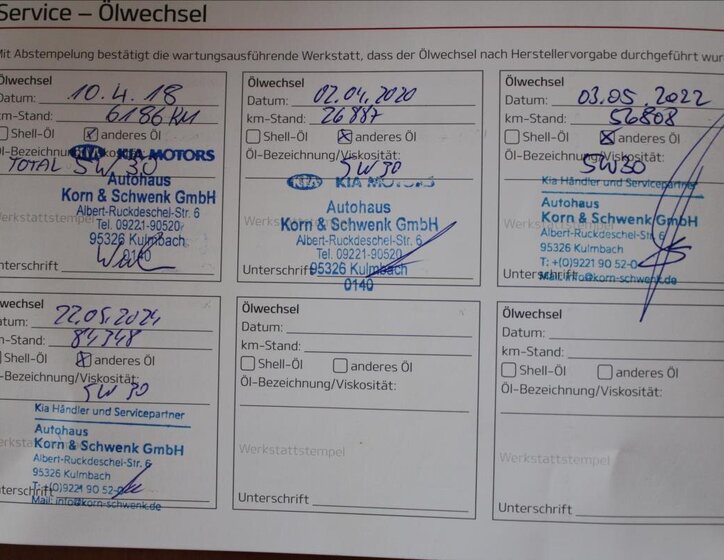 Service – Ölwechsel
Mit Abstempelung bestätigt die wartungsausführende Werkstatt, dass der Ölwechsel nach Herstellervorgabe durchgeführt wur
Ölwechsel
Datum: 10.4.18
km-Stand: 6186 KM
Shell-Öl anderes Öl
Öl-Bezeichnung/Viskosität:
TOTAL 5W30
KIA KIA MOTORS
Autohaus
Korn & Schwenk GmbH
Albert-Ruckdeschel-Str. 6
Tel. 09221-90520
95326 Kulmbach
0140
Unterschrift
Ölwechsel
Datum: 02.04.2020
km-Stand: 26887
Shell-Öl anderes Öl
Öl-Bezeichnung/Viskosität:
5W30
KIA KIA MOTORS
Autohaus
Korn & Schwenk GmbH
Albert-Ruckdeschel-Str. 6
Tel. 09221-90520
95326 Kulmbach
0140
Unterschrift
Ölwechsel
Datum: 03.05.2022
km-Stand: 56808
Shell-Öl anderes Öl
Öl-Bezeichnung/Viskosität:
5W30
Kia Händler und Servicepartner
Autohaus
Korn & Schwenk GmbH
Albert-Ruckdeschel-Str. 6
95326 Kulmbach
T: +(0)9221 90 52-0
Mail: info@korn-schwenk.de
Unterschrift
Ölwechsel
atum: 22.05.2024
m-Stand: 84348
Shell-Öl anderes Öl
l-Bezeichnung/Viskosität:
5W30
Kia Händler und Servicepartner
Autohaus
Korn & Schwenk GmbH
Albert-Ruckdeschel-Str. 6
95326 Kulmbach
T: +(0)9221 90 52-0
Mail: info@korn-schwenk.de
nterschrift
Ölwechsel
Datum:
km-Stand:
Shell-Öl anderes Öl
Öl-Bezeichnung/Viskosität:
Werkstattstempel
Unterschrift
Ölwechsel
Datum:
km-Stand:
Shell-Öl anderes Öl
Öl-Bezeichnung/Viskosität:
Werkstattstempel
Unterschrift